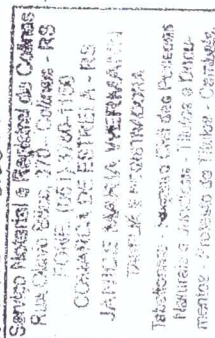 Serviço Notarial e Registral de Colinas
RUA Olavo Bilac, 370 - Colinas - RS
FONE (51) 3760-1160
COMARCA DE ESTRELA - RS
JANICE MARIA WERMANN
TABELIÃ E REGISTRADORA
Tabelionato - Registro Civil das Pessoas
Naturais e Jurídicas - Títulos e Docu-
mentos - Protesto de Títulos -